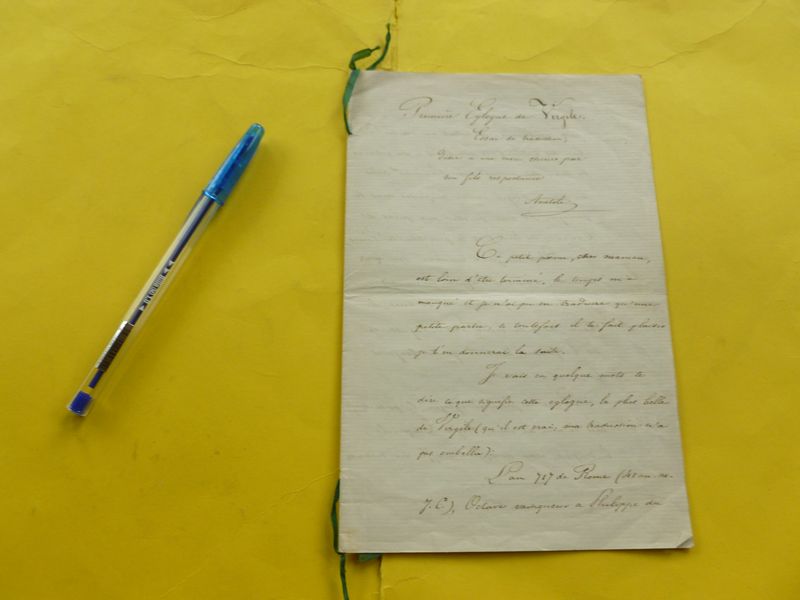 Première Eglogue de Virgile.
Essai de
dédié à ma mère chérie par
son fils respectueux
Anatole
Ce petit poème, chère maman,
est loin d'être terminé, le temps m'a
manqué et je n'ai pu en traduire qu'une
petite partie, si toutefois il te fait plaisir
je t'en donnerai la suite.
Je vais en quelque mots te
dire ce que signifie cette eglogue, la plus belle
de Virgile (qu'il est vrai, ma traduction n'a
pas embellie):
L'an 727 de Rome (
J.C.), Octave vainqueur à Philippe du